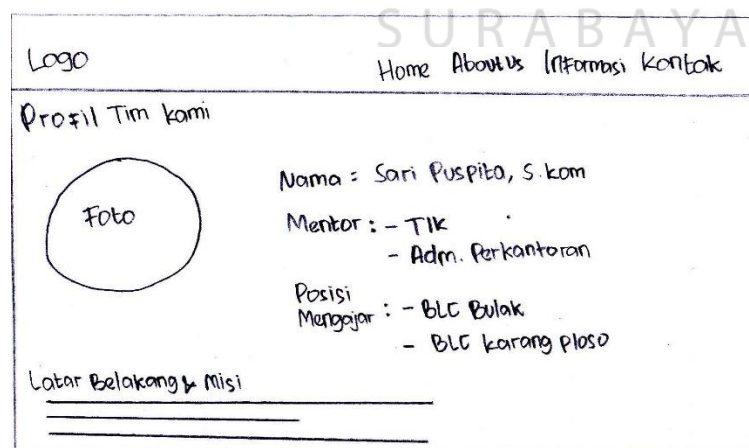 SURABAYA
Logo Home About Us Informasi Kontak
Profil Tim Kami
Foto
Nama : Sari Puspita, S.kom
Mentor : - TIK
- Adm. Perkantoran
Posisi
Mengajar : - BLC Bulak
- BLC karang ploso
Latar Belakang & Misi